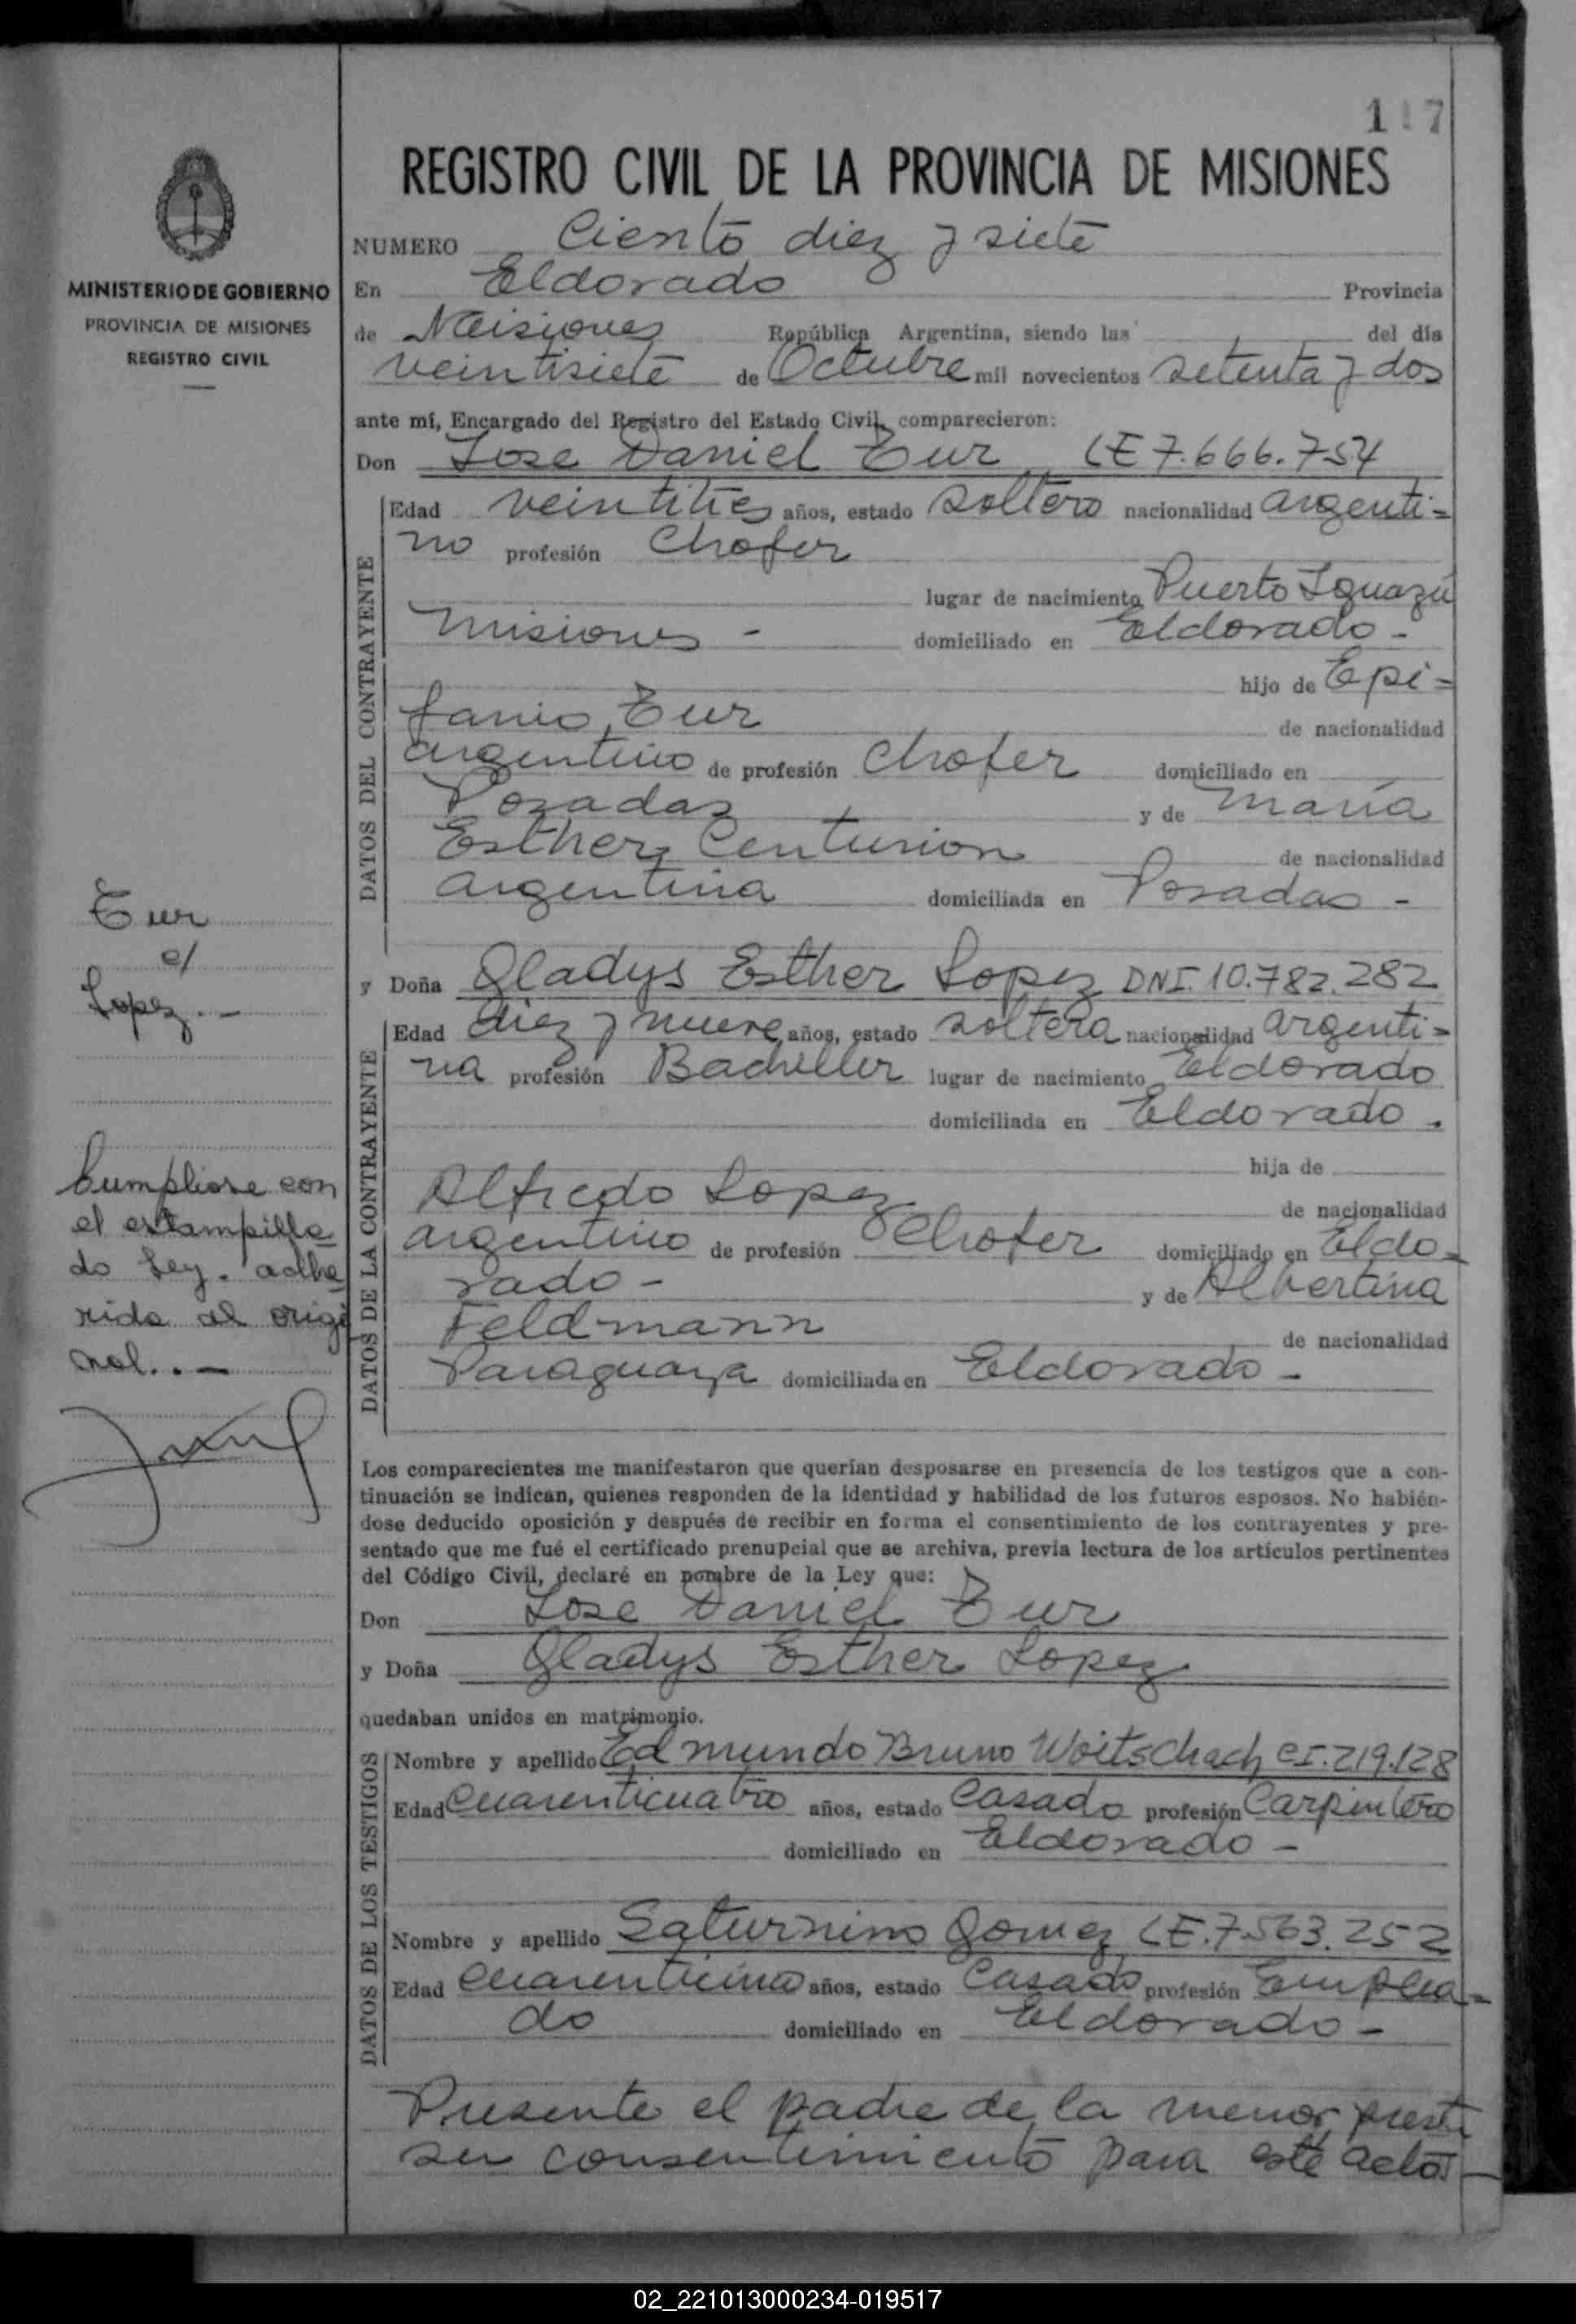 117
REGISTRO CIVIL DE LA PROVINCIA DE MISIONES
MINISTERIO DE GOBIERNO
PROVINCIA DE MISIONES
REGISTRO CIVIL
NUMERO Ciento diez y siete
En Eldorado Provincia
de Misiones República Argentina, siendo las del día
veintisiete de Octubre mil novecientos setenta y dos
ante mí, Encargado del Registro del Estado Civil, comparecieron:
Don Jose Daniel Tur LE 7.666.754
DATOS DEL CONTRAYENTE
Edad veintitres años, estado soltero nacionalidad argenti=
no profesión Chofer
lugar de nacimiento Puerto Iguazú
Misiones - domiciliado en Eldorado -
hijo de Epi=
fanio Tur de nacionalidad
argentino de profesión Chofer domiciliado en
Posadas y de Maria
Esther Centurion de nacionalidad
argentina domiciliada en Posadas -
Tur
c/
Lopez.-
y Doña Gladys Esther Lopez DNI. 10.782.282
DATOS DE LA CONTRAYENTE
Edad diez y nueve años, estado soltera nacionalidad argenti=
na profesión Bachiller lugar de nacimiento Eldorado
domiciliada en Eldorado.
hija de
Alfredo Lopez de nacionalidad
argentino de profesión Chofer domiciliado en Eldo=
rado - y de Albertina
Feldmann de nacionalidad
Paraguaya domiciliada en Eldorado -
Cumpliose con
el estampilla
do Ley. adhe
rido al origi
nal..-
Los comparecientes me manifestaron que querían desposarse en presencia de los testigos que a con-
tinuación se indican, quienes responden de la identidad y habilidad de los futuros esposos. No habién-
dose deducido oposición y después de recibir en forma el consentimiento de los contrayentes y pre-
sentado que me fué el certificado prenupcial que se archiva, previa lectura de los artículos pertinentes
del Código Civil, declaré en nombre de la Ley que:
Don Jose Daniel Tur
y Doña Gladys Esther Lopez
quedaban unidos en matrimonio.
DATOS DE LOS TESTIGOS
Nombre y apellido Edmundo Bruno Woitschach CI. 219.128
Edad Cuarenticuatro años, estado Casado profesión Carpintero
domiciliado en Eldorado -
DATOS DE LOS TESTIGOS
Nombre y apellido Saturnino Gomez LE. 7.563.252
Edad años, estado Casado profesión Emplea=
do domiciliado en Eldorado -
Presente el padre de la menor presta
su consentimiento para este acto -
02_221013000234-019517